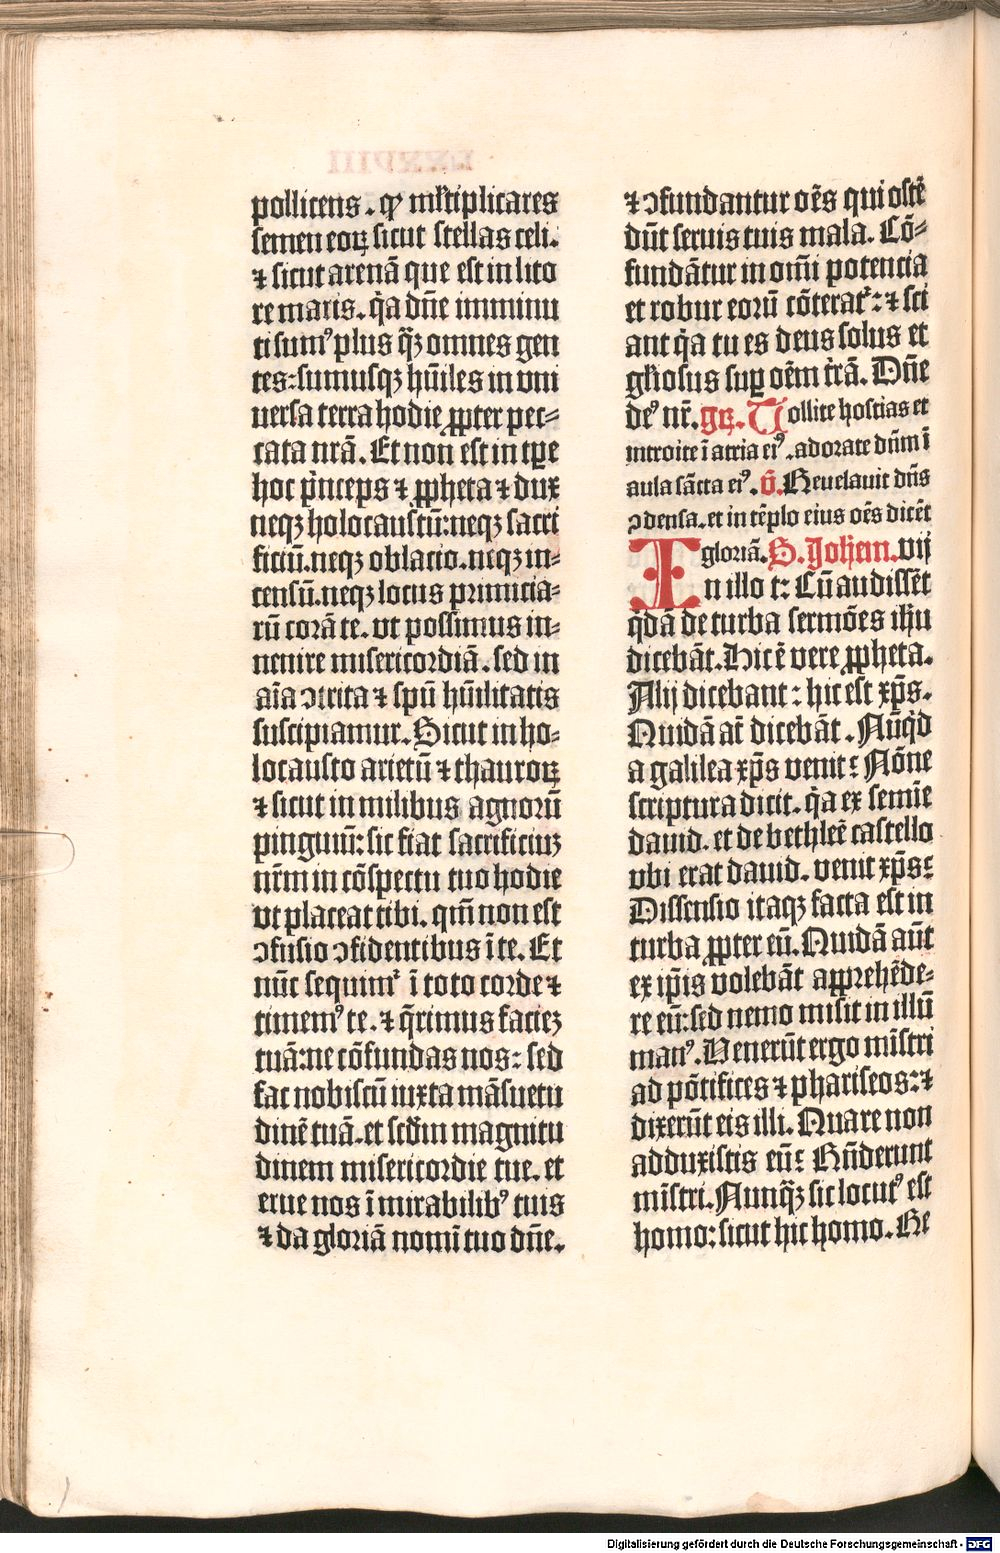 pollicens. qꝫ ml̃tiplicares
semen eoꝝ sicut stellas celi.
⁊ sicut arenã que est in lito
re maris. q̃a dñe imminu
ti sumꝰ plus q̃ꝫ omnes gen
tes: sumusqꝫ hũiles in vni
uersa terra hodie ꝓpter pec⸗
cata nr̃a. Et non est in tꝑe
hoc p̃nceps ⁊ ꝓpheta ⁊ dux
neqꝫ holocaustũ: neqꝫ sacri
ficiũ. neqꝫ oblacio. neqꝫ in⸗
censũ. neqꝫ locus primicia⸗
rũ corã te. vt possimus in⸗
uenire misericordiã. sed in
aĩa ↄtrita ⁊ spũ hũilitatis
suscipiamur. Sicut in ho⸗
locausto arietũ ⁊ thauroꝝ
⁊ sicut in milibus agnorũ
pinguiũ: sic fiat sacrificiuꝫ
nr̃m in cõspectu tuo hodie
vt placeat tibi. qm̃ non est
ↄfusio ↄfidentibus ĩ te. Et
nũc sequimr̃ ĩ toto corde ⁊
timemꝰ te. ⁊ q̃rimus facieꝫ
tuã: ne cõfundas nos: sed
fac nobiscũ iuxta mãsuetu
dinẽ tuã. et scd̃m magnitu
dinem misericordie tue. et
erue nos ĩ mirabilibꝰ tuis
⁊ da gloriã nomĩ tuo dñe.
⁊ ↄfundantur oẽs qui ostẽ
dũt seruis tuis mala. Cõ⸗
fundãtur in om̃i potencia
et robur eorũ cõterat᷑: ⁊ sci
ant q̃a tu es deus solus et
gl̃iosus suꝑ oẽm tr̃ã. Dñe
deꝰ nr̃. gꝝ. Tollite hostias et
introite ĩ atria eiꝰ. adorate dñm ĩ
aula sãcta eiꝰ. ꟟. Reuelauit dñs
ↄdensa. et in tẽplo eius oẽs dicẽt
gloriã. S. Johem. vij
In illo t: Cũ audissẽt
q̃dã de turba sermões ihũ
dicebãt. Hic ẽ vere ꝓpheta.
Alij dicebant: hic est xp̃s.
Quidã at̃ dicebãt. Nũq̃d
a galilea xp̃s venit: Nõne
scriptura dicit. q̃a ex semĩe
dauid. et de bethleẽ castello
vbi erat dauid. venit xp̃s:
Dissensio itaqꝫ facta est in
turba ꝓpter eũ. Quidã aũt
ex ip̃is volebãt apprehẽde⸗
re eũ: sed nemo misit in illũ
manꝰ. Venerũt ergo mĩstri
ad põtifices ⁊ phariseos: ⁊
dixerũt eis illi. Quare non
adduxistis eũ: Rñderunt
mĩstri. Nunq̃ꝫ sic locutꝰ est
homo: sicut hic homo. Re
Digitalisierung gefördert durch die Deutsche Forschungsgemeinschaft - DFG